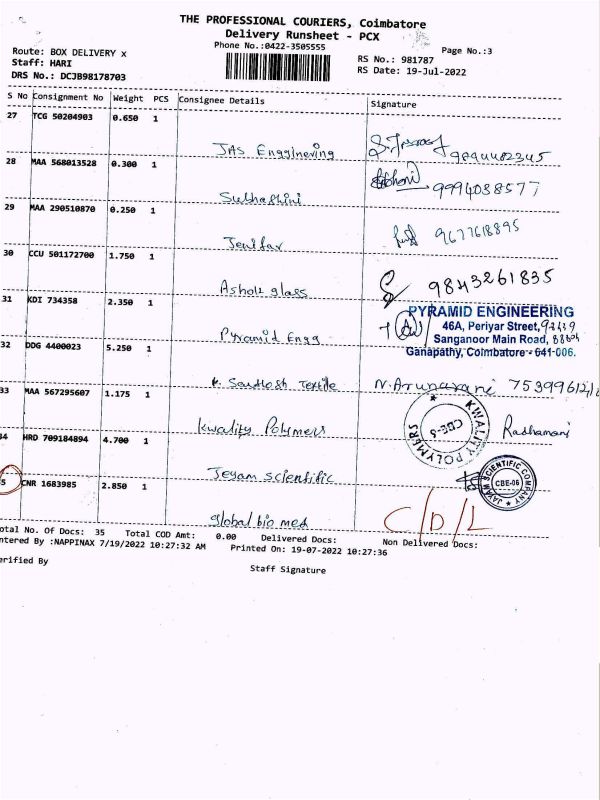 THE PROFESSIONAL COURIERS, Coimbatore
Delivery Runsheet - PCX
Phone No.:0422-3505555
Page No.:3
Route: BOX DELIVERY x
Staff: HARI
DRS No.: DCJB98178703
RS No.: 981787
RS Date: 19-Jul-2022
S No Consignment No Weight PCS Consignee Details Signature
27 TCG 50204903 0.650 1
JAS Engginering
28 MAA 568013528 0.300 1
Suthashini 9994038577
29 MAA 290510870 0.250 1
Jenifar 9677618895
30 CCU 501172700 1.750 1
Ashok glass 9843261835
31 KDI 734358 2.350 1
Pyramid Engg
PYRAMID ENGINEERING
46A, Periyar Street,
Sanganoor Main Road,
Ganapathy, Coimbatore - 641-006.
32 DDG 4400023 5.250 1
K. Santhosh Textile N. Arunarani
33 MAA 567295607 1.175 1
Kwality Polymers Radhamani
KWALITY POLYMERS
CBE-6
34 HRD 709184894 4.700 1
Jeyam Scientific
SCIENTIFIC COMPANY
CBE-06
5 CNR 1683985 2.850 1
global bio med C/D/L
otal No. Of Docs: 35 Total COD Amt: 0.00 Delivered Docs: Non Delivered Docs:
ntered By :NAPPINAX 7/19/2022 10:27:32 AM Printed On: 19-07-2022 10:27:36
erified By
Staff Signature